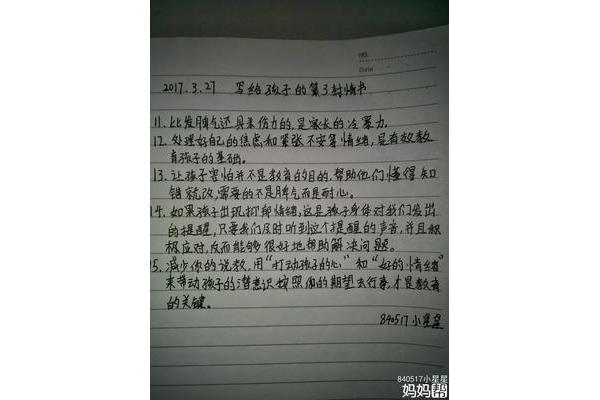 NO.
Date
2017.3.27 写给孩子的第3封情书
11. 比发脾气还具杀伤力的,是家长的冷暴力.
12. 处理好自己的焦虑和紧张不安等情绪,是有效教
育孩子的基础。
13. 让孩子害怕并不是教育的目的,帮助他们懂得知
错就改,需要的不是脾气而是耐心。
14. 如果孩子出现抑郁情绪,这是孩子身体对我们发出
的提醒,只要我们及时听到这个提醒的声音,并且积
极应对,反而能够很好地帮助解决问题。
15. 减少你的说教,用“打动孩子的心”和“好的情绪”
来带动孩子的潜意识按照你的期望去行事,才是教育
的关键。
840517小星星
840517小星星
妈妈帮